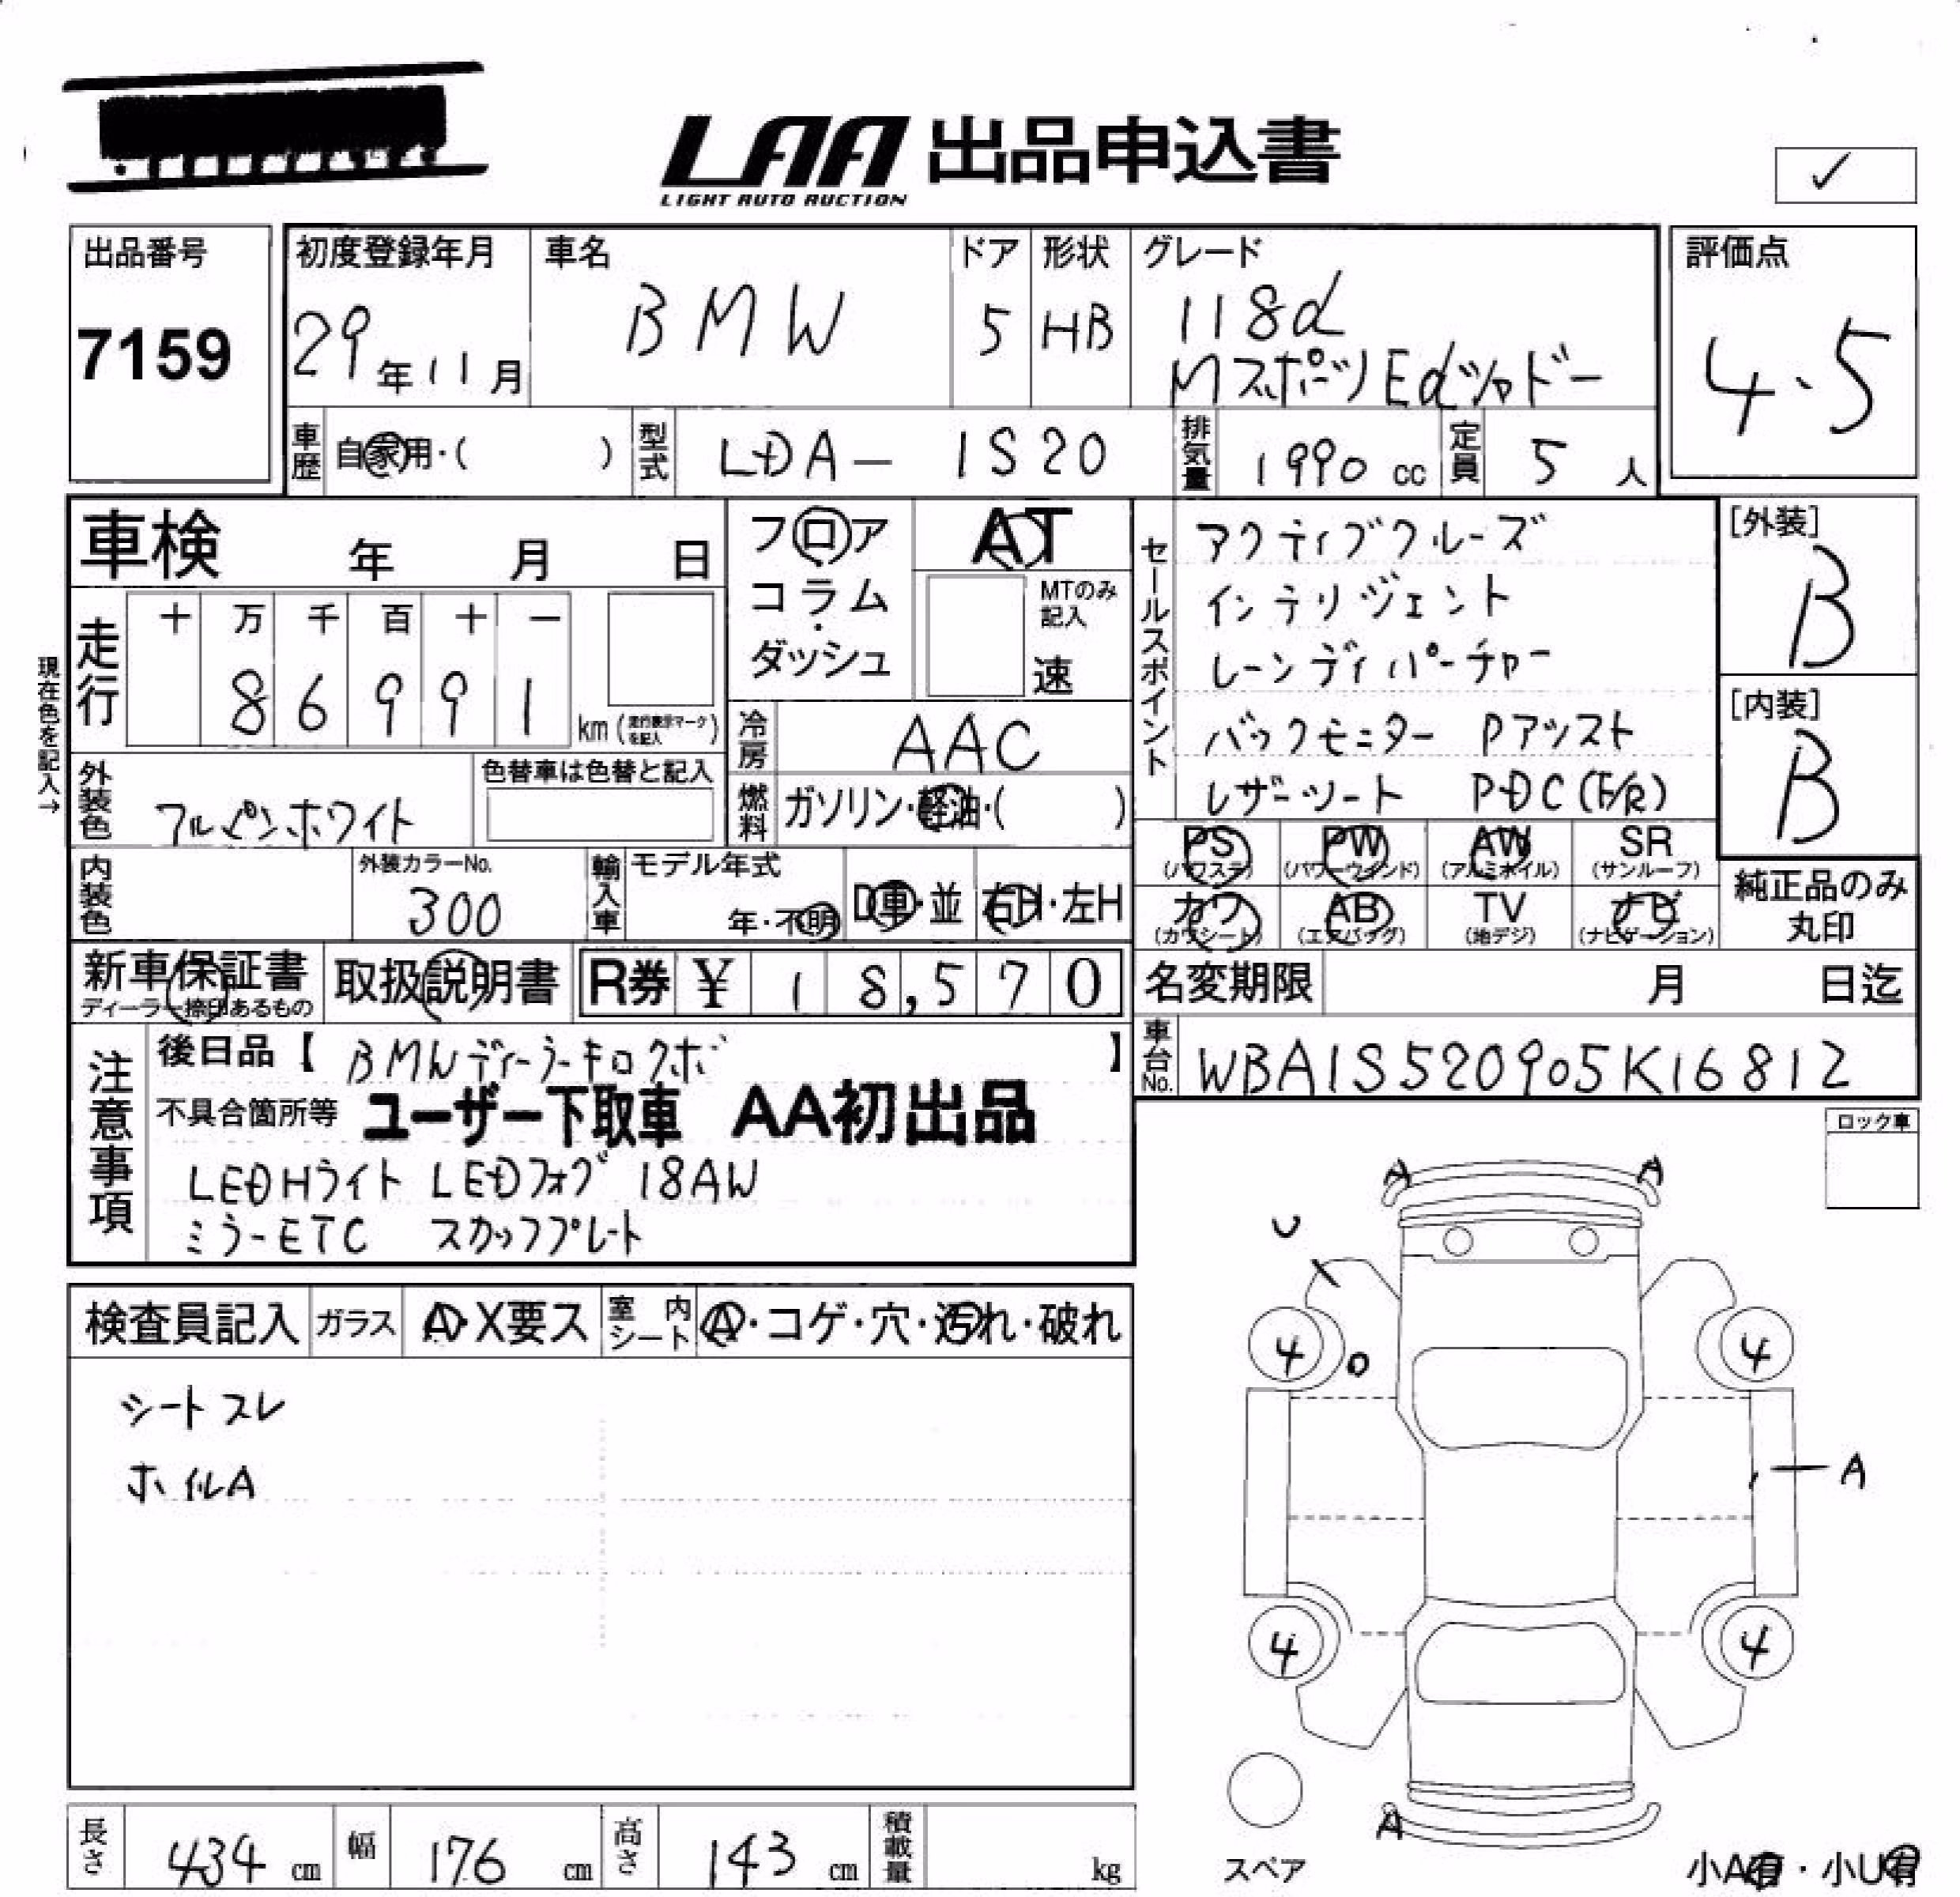 LAA 出品申込書
LIGHT AUTO AUCTION
✓
出品番号
7159
初度登録年月
29年11月
車名
BMW
ドア
5
形状
HB
グレード
118d
MスポーツEdシャドー
評価点
4.5
車歴
自家用・(　　)
型式
LDA-1S20
排気量
1990 cc
定員
5 人
車検　年　月　日
フロア
コラム
ダッシュ
AT
MTのみ記入
速
セールスポイント
アクティブクルーズ
インテリジェント
レーンディパーチャー
バックモニター Pアシスト
レザーシート PDC(F/R)
[外装]
B
[内装]
B
現在色を記入→
走行
十 万 千 百 十 一
8 6 9 9 1
km (走行表示マークを記入)
冷房
AAC
外装色
アルピンホワイト
色替車は色替と記入
燃料
ガソリン・軽油・(　　)
PS (パワステ)
PW (パワーウインド)
AW (アルミホイル)
SR (サンルーフ)
カワ (カワシート)
AB (エアバッグ)
TV (地デジ)
ナビ (ナビゲーション)
純正品のみ
丸印
内装色
外装カラーNo.
300
輸入車
モデル年式
年・不明
D車・並
右H・左H
新車保証書
ディーラー捺印あるもの
取扱説明書
R券 ¥ 18,570
名変期限　月　日迄
車台No.
WBA1S520905K16812
注意事項
後日品【 BMWディーラーキロクボ 】
不具合箇所等 ユーザー下取車 AA初出品
LEDHライト LEDフォグ 18AW
ミラーETC スカッフプレート
ロック車
検査員記入
ガラス
A・X要ス
室内シート
A・コゲ・穴・汚れ・破れ
シートスレ
ホイルA
A
A
U
4
4
A
4
4
A
スペア
小A有・小U有
長さ
434 cm
幅
176 cm
高さ
143 cm
積載量
kg